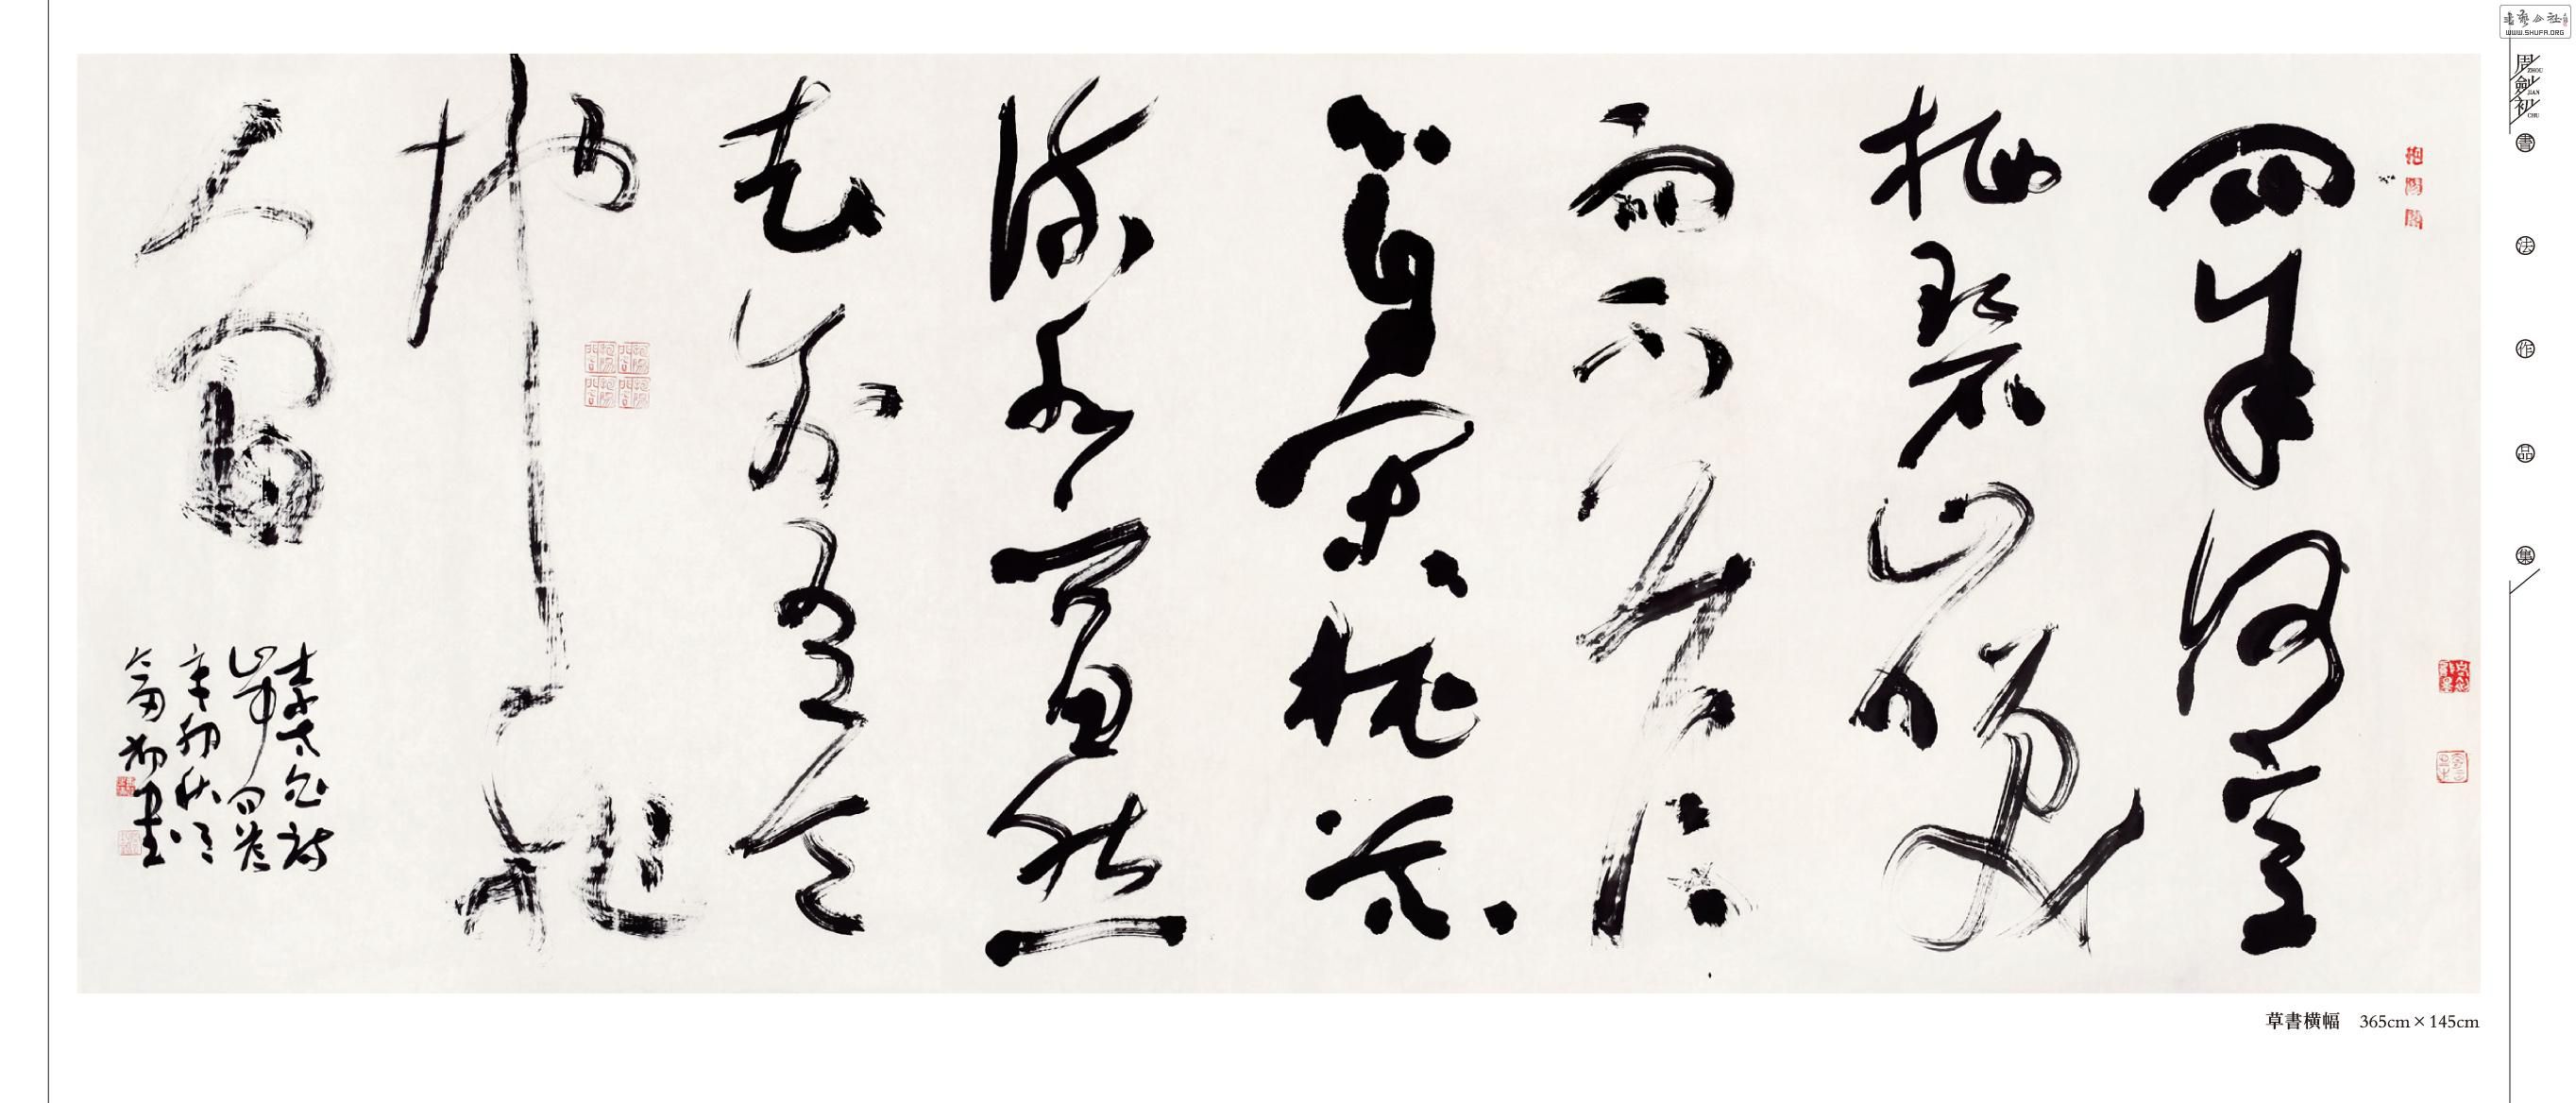 問余何意
栖碧山笑
而不答心
自閑桃花
流水窅然
去别有天
地非
人間
李太白詩
山中問答
辛卯秋
劍初書
書法公社
WWW.SHUFA.ORG
周 ZHOU
劍 JIAN
初 CHU
書法作品集
草書横幅 365cm×145cm